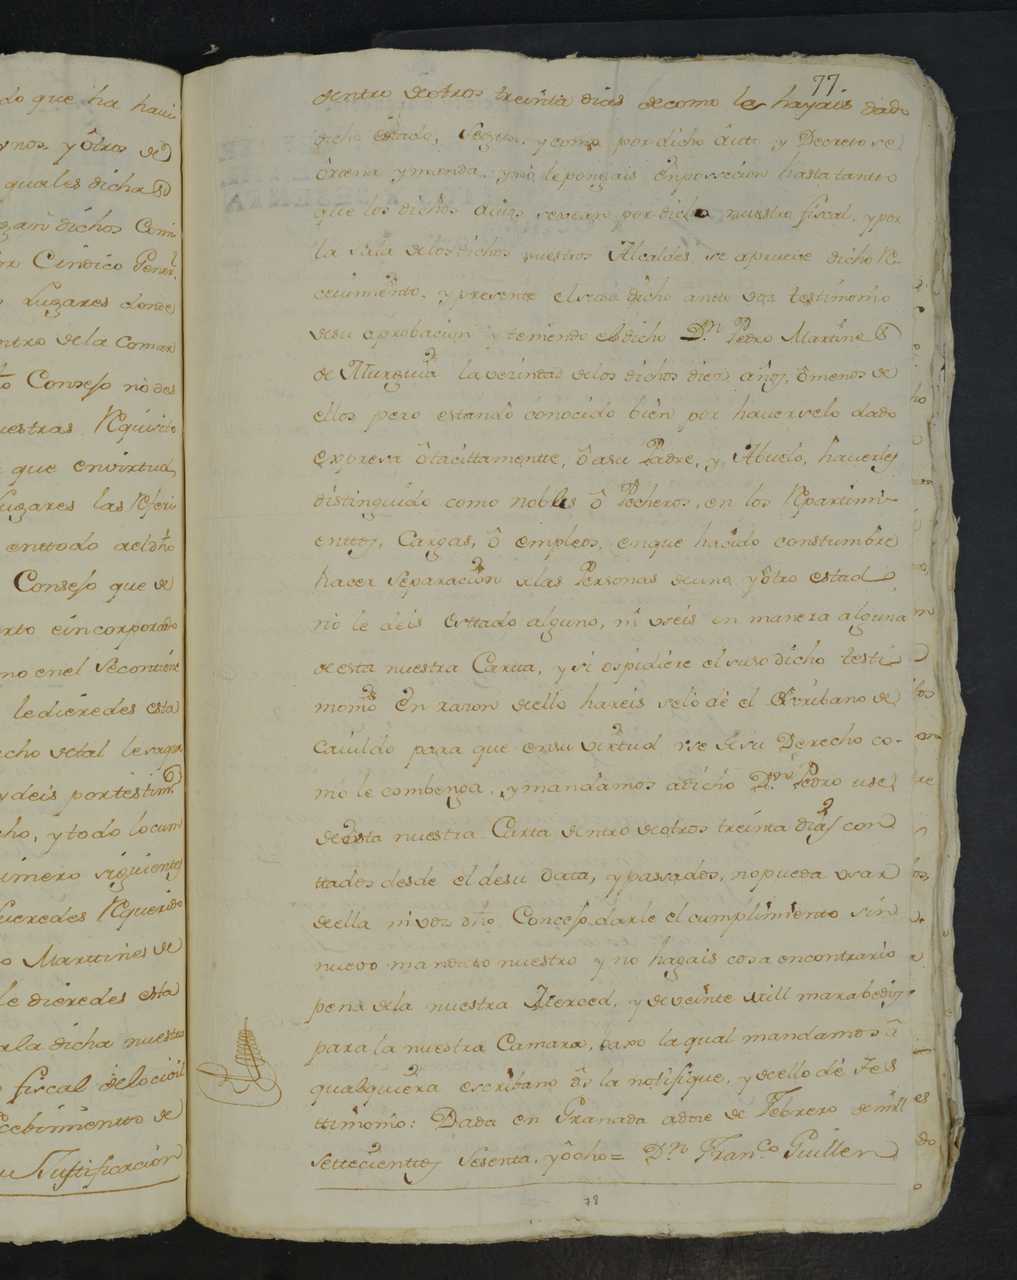 do que ha havi
ynos y ôtros de
quales dicha
gan dichos Comi
or Cindico Gener.l
Lugares donde
ntro de la Comar
Consejo no des
uestras Rquisito
que envirtud
lugares las Rferi
enttodo al dho
Consejo que de
erto eincorporado
mo en el se contiene
le dieredes esta
cho de tal le
y deis por testim.o
cho, y todo lo cum
imero siguientes
fueredes Rquerido
o Marttines de
le dieredes esta
ala dicha nuestra
fiscal de lo civil
ecebimiento de
u Justificacion
77
dentro de otros treinta dias de como le hayais dado
dicho estado, segun, y como por dicho auto y Decreto se
ordena y manda, y no le pongais en possecion hasta tantto
que los dichos autos se vean por dicho nuestro fiscal, y por
la sala de los dichos nuestros Alcaldes se aprueve dicho Re-
cevimiento, y presente el suso dicho ante vos testimonio
de su aprobacion y teniendo el dicho D.n Pedro Martines
de Murguia la vecindad de los dichos diez años, ô menos de
ellos pero estando conocido bien por haverselo dado
expresa ô tacittamentte, ô a su Padre, y Abuelo, haverles
distinguido como nobles ô Pecheros, en los Rpartimi-
enttos, Cargas, ô empleos, en que ha sido constumbre
hacer separacion a las Personas de uno y ôtro estado
no le deis esttado alguno, ni useis en manera alguna
de esta nuestra Cartta, y si os pidiere el suso dicho testi
monio en razon de ello hareis se lo dé el Escribano de
Cavildo para que en su virtud use de su Derecho co-
mo le combenga, y mandamos a dicho D.n Pedro use
de esta nuestra Carta dentro de otros treinta dias con
ttados desde el de su data, y passados, no pueda usar
de ella ni vos dho Concejo darle el cumplimiento sin
nuevo mandato nuestro y no hagais cosa en contrario
pena de la nuestra Merced, y de veinte mill marabedis
para la nuestra Camara, vajo la qual mandamos â
qualquiera escribano ôs la notifique, y de ello dé tes
ttimonio: Dada en Granada a doze de Febrero de mill
settecienttos sesenta, y ôcho= D.n Fran.co Guillen
78